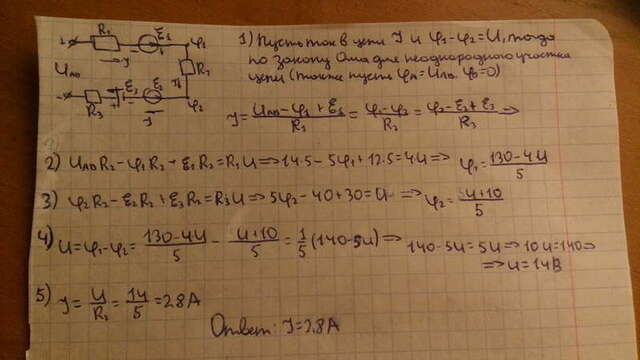 R₁ ℰ₁ φ₁
1) Пусть ток в цепи I и φ₁-φ₂=U, тогда
по закону Ома для неоднородного участка
цепи (также пусть φA=UAB, φB=0)
I
UAB R₂
ℰ₃ ℰ₂ I
R₃ I φ₂
I = (UAB-φ₁+ℰ₁)/R₁ = (φ₁-φ₂)/R₂ = (φ₂-ℰ₂+ℰ₃)/R₃ ⇒
2) UABR₂-φ₁R₂+ℰ₁R₂=R₁U ⇒ 14·5-5φ₁+12·5=4U ⇒ φ₁=(130-4U)/5
3) φ₂R₂-ℰ₂R₂+ℰ₃R₂=R₃U ⇒ 5φ₂-40+30=U ⇒ φ₂=(U+10)/5
4) U=φ₁-φ₂=(130-4U)/5-(U+10)/5=1/5(140-5U) ⇒ 140-5U=5U ⇒ 10U=140 ⇒
⇒ U=14В
5) I=U/R₂=14/5=2.8A
Ответ: I=2.8A